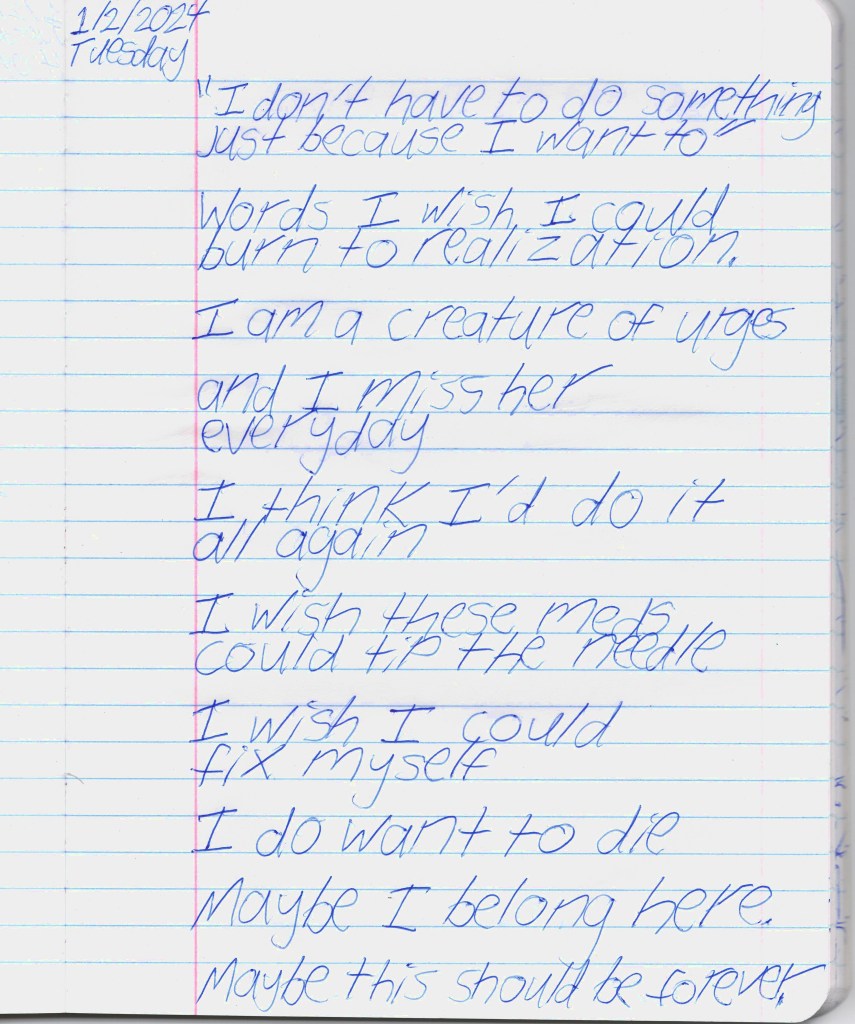 1/2/2024
Tuesday
"I don't have to do something
just because I want to"
Words I wish I could
burn to realization.
I am a creature of urges
and I miss her
everyday
I think I'd do it
all again
I wish these meds
could tip the needle
I wish I could
fix myself
I do want to die
Maybe I belong here.
Maybe this should be forever.